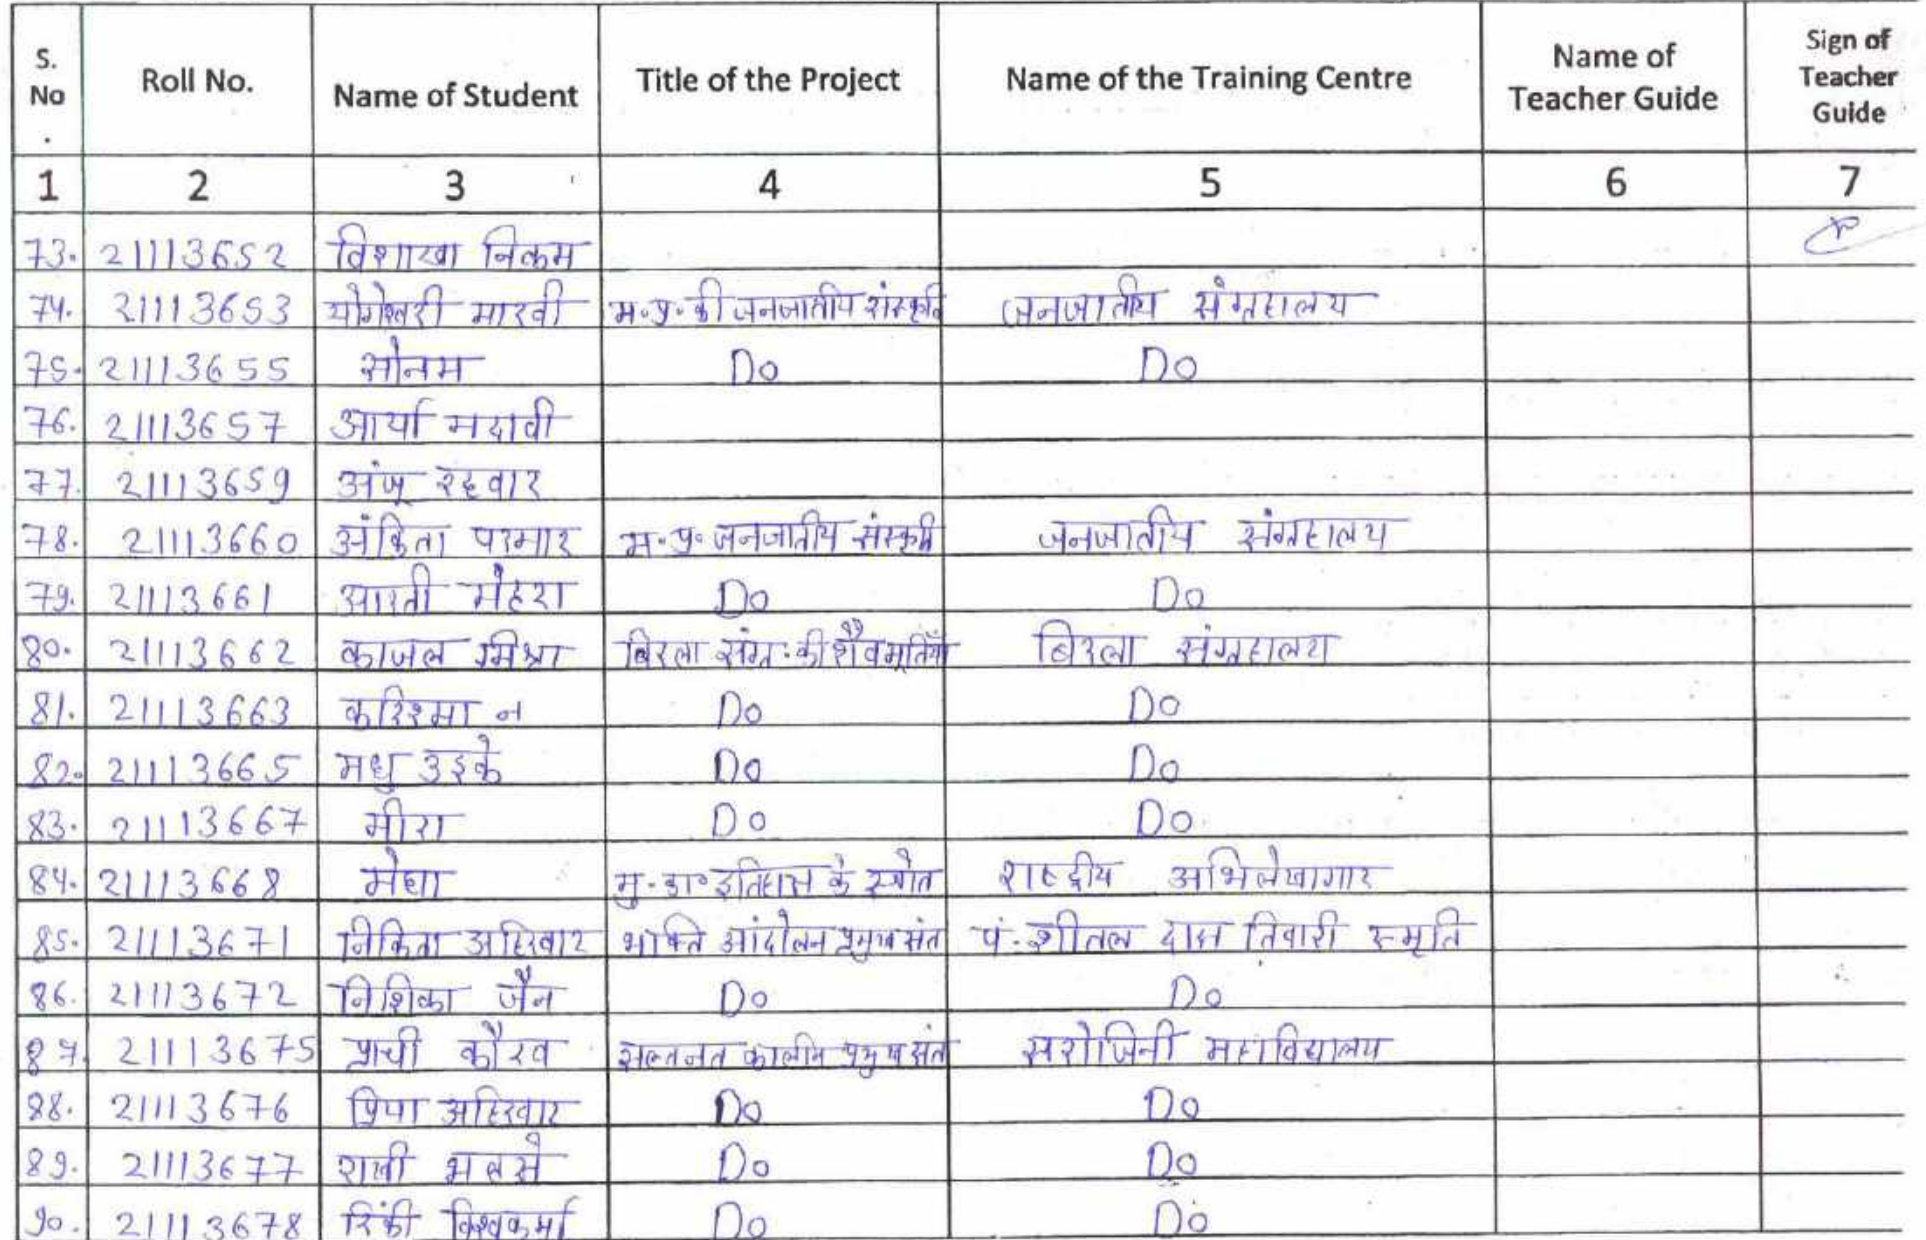 S. No. Roll No. Name of Student Title of the Project Name of the Training Centre Name of Teacher Guide Sign of Teacher Guide
1 2 3 4 5 6 7
73. 21113652 विशाखा निकम
74. 21113653 योगेश्वरी मारवी म.प्र. की जनजातीय संस्कृति जनजातीय संग्रहालय
75. 21113655 सोनम Do Do
76. 21113657 आर्या मदावी
77. 21113659 अंजू
78. 21113660 अंकिता परमार म.प्र. जनजातीय संस्कृति जनजातीय संग्रहालय
79. 21113661 आरती मेहरा Do Do
80. 21113662 काजल मिश्रा बिरला संग्र. की शैव मूर्तियाँ बिरला संग्रहालय
81. 21113663 करिश्मा न Do Do
82. 21113665 मधु उइके Do Do
83. 21113667 मीरा Do Do
84. 21113668 मेघा मु. का॰ इतिहास के स्त्रोत राष्ट्रीय अभिलेखागार
85. 21113671 निकिता अहिरवार भक्ति आंदोलन प्रमुख संत पं. शीतल दास तिवारी स्मृति
86. 21113672 निशिका जैन Do Do
87. 21113675 प्राची कौरव सल्तनत कालीन प्रमुख संत सरोजिनी महाविद्यालय
88. 21113676 प्रिया अहिरवार Do Do
89. 21113677 राखी Do Do
90. 21113678 रिंकी विश्वकर्मा Do Do